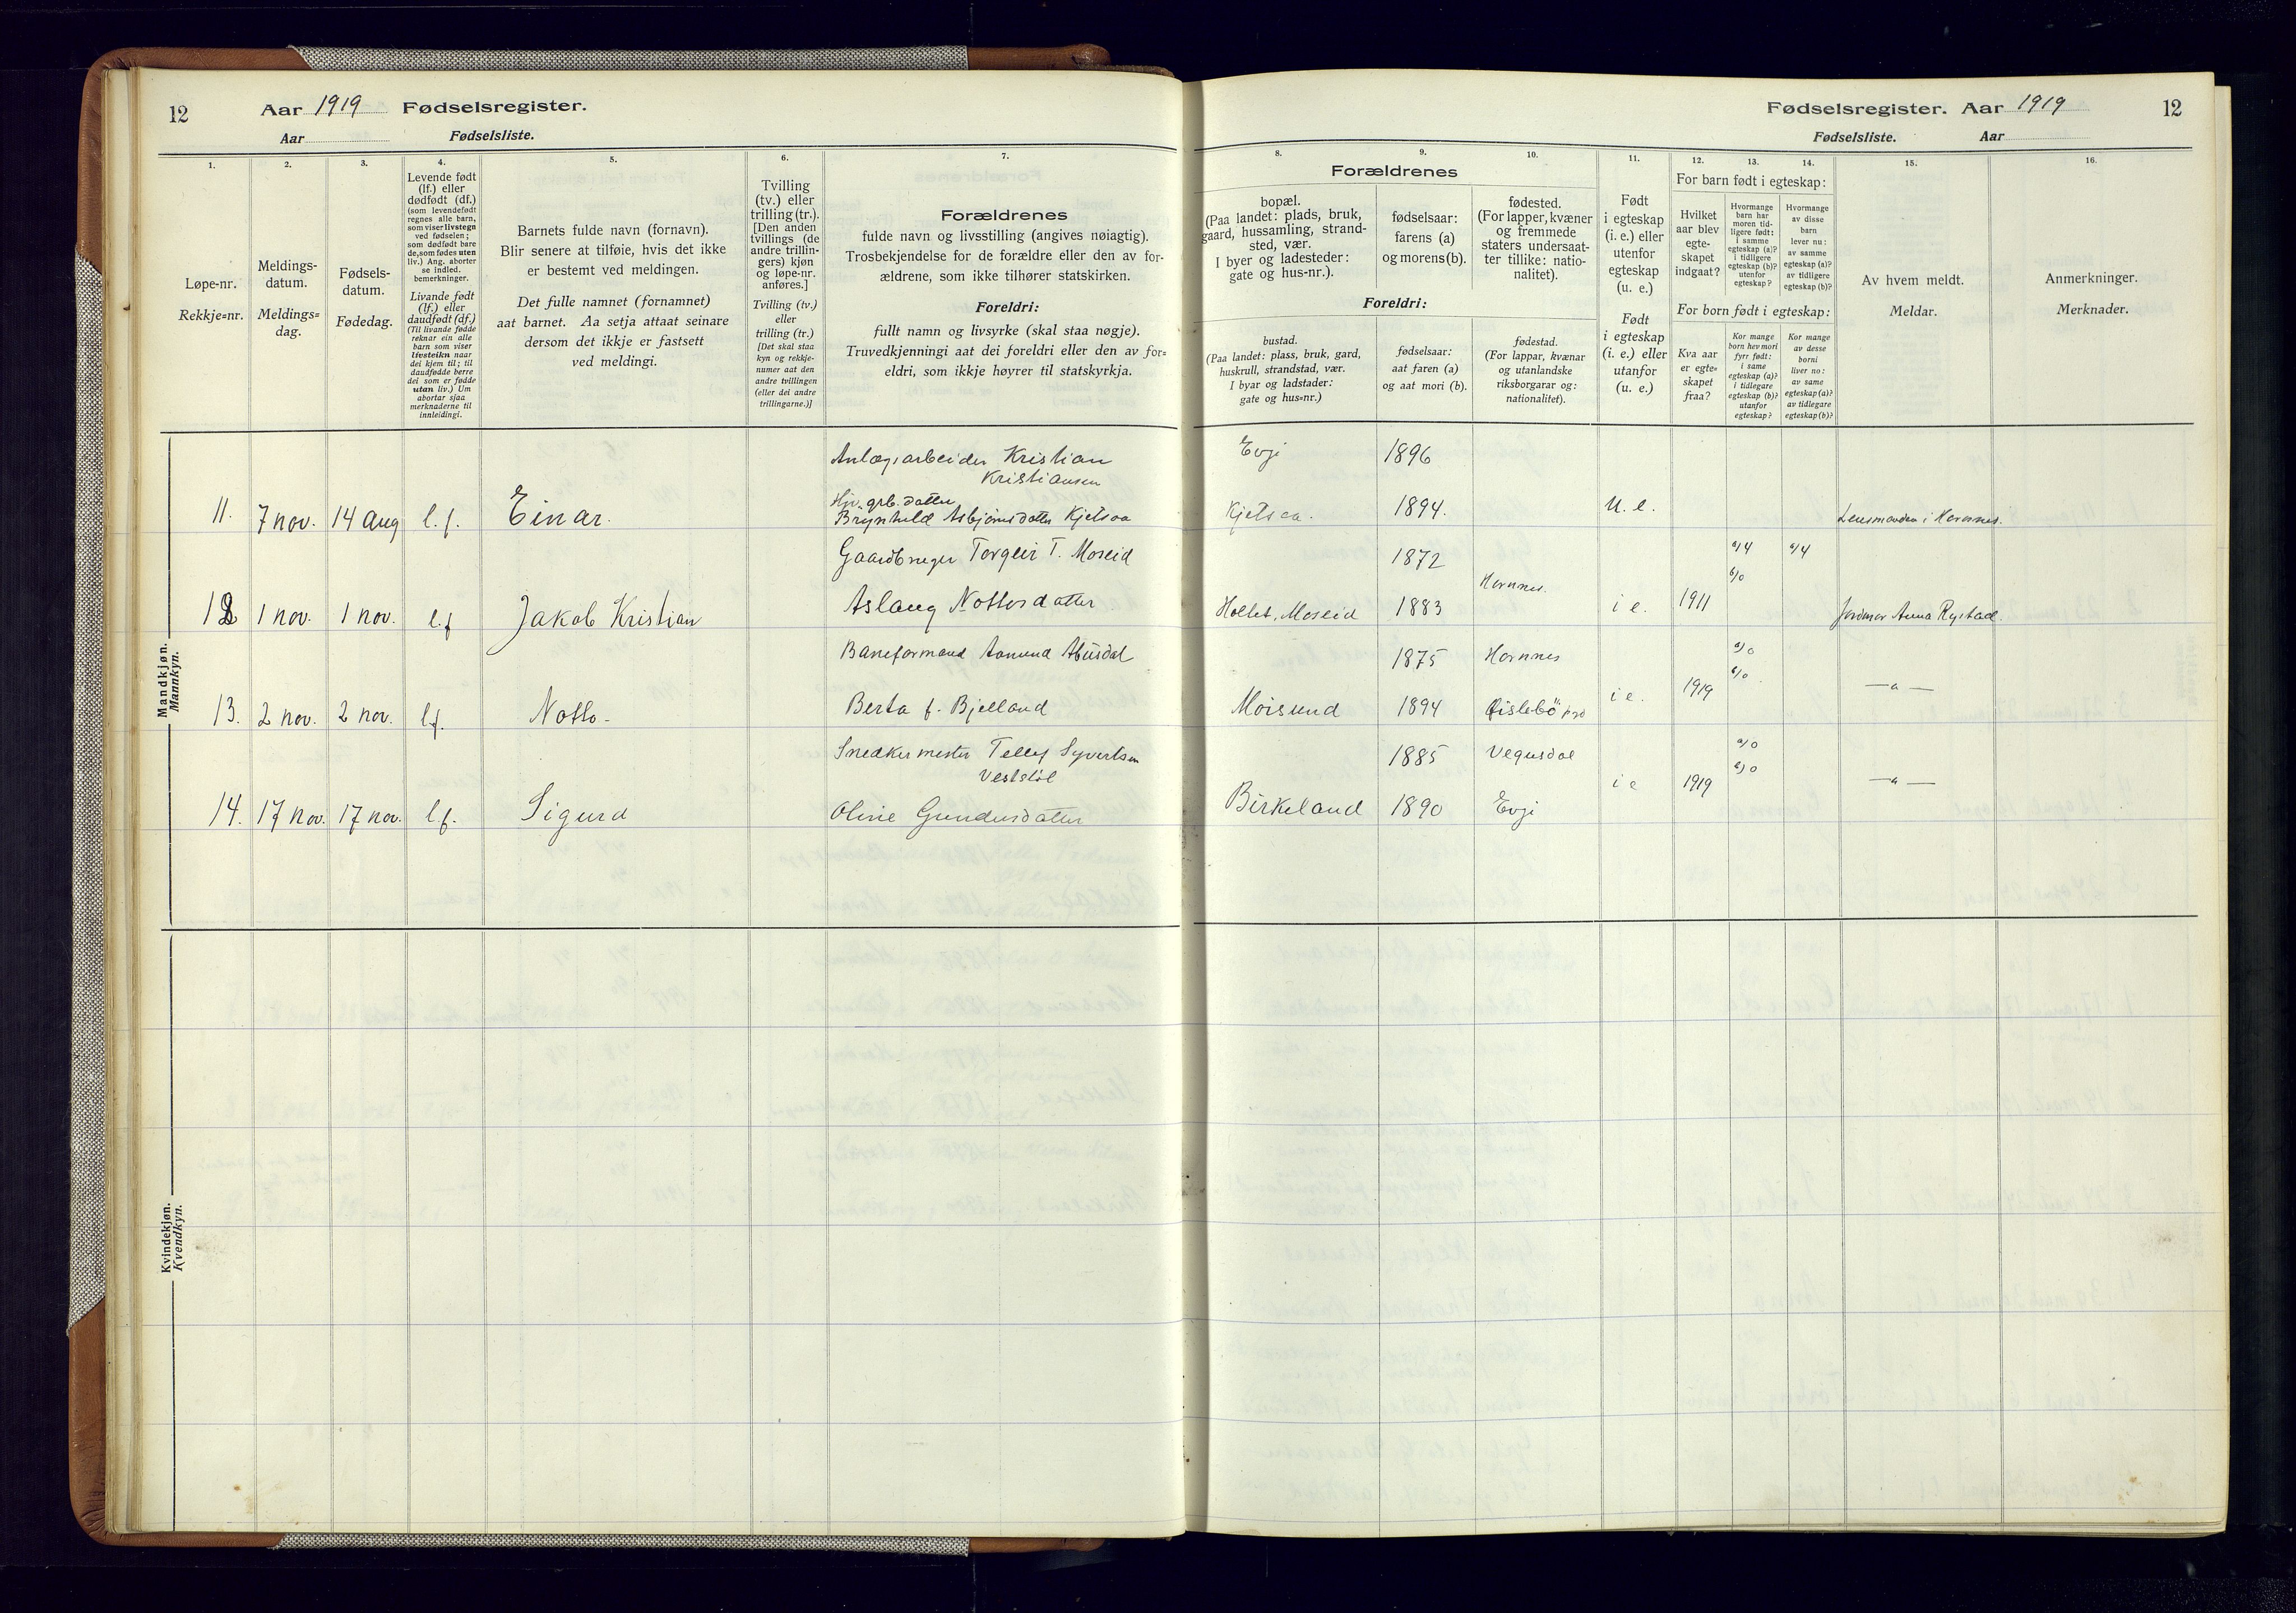 12
Aar 1919 Fødselsregister.
Aar Fødselsliste.
1.
2.
3.
4.
5.
6.
7.
Løpe-nr.
Rekkje=nr.
Meldings-
datum.
Meldings=
dag.
Fødsels-
datum.
Fødedag.
Levende født
(lf.) eller
dødfødt (df.)
(som levendefødt
regnes alle barn,
som viser livstegn
ved fødselen;
som dødfødt bare
de, som fødes uten
liv.) Ang. aborter
se indled.
bemerkninger.
Livande født
(lf.) eller
daudfødt (df.)
(Til livande fødde
reknar ein alle
barn som viser
livsteikn naar
dei kjem til; til
daudfødde berre
dei som er fødde
utan liv.) Um
abortar sjaa
merknaderne til
innleidingi.
Barnets fulde navn (fornavn).
Blir senere at tilføie, hvis det ikke
er bestemt ved meldingen.
Det fulle namnet (fornamnet)
aat barnet. Aa setja attaat seinare
dersom det ikkje er fastsett
ved meldingi.
Tvilling
(tv.) eller
trilling (tr.).
[Den anden
tvillings (de
andre trillin-
gers) kjøn
og løpe-nr.
anføres.]
Tvilling (tv.)
eller
trilling (tr.)
[Det skal staa
kyn og rekkje-
numer aat den
andre tvillingen
(eller dei andre
trillingarne.)]
Forældrenes
fulde navn og livsstilling (angives nøiagtig).
Trosbekjendelse for de forældre eller den av for-
ældrene, som ikke tilhører statskirken.
Foreldri:
fullt namn og livsyrke (skal staa nøgje).
Truvedkjenningi aat dei foreldri eller den av for=
eldri, som ikkje høyrer til statskyrkja.
Mandkjøn.
Mannkyn.
Anlægsarbeider Kristian
Kristiansen
11. 7 nov. 14 aug l. f. Einar. Brynhild Asbjørnsdatter Kjetsaa
Gaardbruger Torgeir T. Moseid
12 1 nov. 1 nov. l.f Jakob Kristian Aslaug Nottosdatter
Baneformand Aanund Abusdal
13. 2 nov. 2 nov. l.f. Notto. Berta f. Bjelland
Snedkermester Tellef Syvertsen
Vestøl
14. 17 nov. 17 nov. l.f. Sigurd Oline Gundersdatter
Kvindekjøn.
Kvendkyn.
Fødselsregister. Aar 1919 12
Fødselsliste. Aar
8.
9.
10.
11.
12.
13.
14.
15.
16.
Forældrenes
bopæl.
(Paa landet: plads, bruk,
gaard, hussamling, strand-
sted, vær.
I byer og ladesteder:
gate og hus-nr.).
fødselsaar:
farens (a)
og morens (b).
fødested.
(For lapper, kvæner
og fremmede
staters undersaat-
ter tillike: natio-
nalitet).
Foreldri:
bustad.
(Paa landet: plass, bruk, gard,
huskrull, strandstad, vær.
I byar og ladstader:
gate og hus=nr.)
fødselsaar:
aat faren (a)
og aat mori (b).
fødestad.
(For lappar, kvænar
og utanlandske
riksborgarar og:
nationalitet).
Født
i egteskap
(i. e.) eller
utenfor
egteskap
(u. e.)
Født
i egteskap
(i. e.) eller
utanfor
(u. e.)
For barn født i egteskap:
Hvilket
aar blev
egte-
skapet
indgaat?
Hvormange
barn har
moren tid-
ligere født:
i samme
egteskap (a)?
i tidligere
egteskap (b)?
utenfor
egteskap?
Hvormange
av disse
barn
lever nu:
av samme
egteskap (a)?
av tidligere
egteskap (b)?
For born født i egteskap:
Kva aar
er egte=
skapet
fraa?
Kor mange
born hev mori
fyrr født:
i same
egteskap (a)?
i tidlegare
egteskap (b)?
utanfor
egteskap?
Kor mange
av desse
borni
liver no:
av same
egteskap (a)?
av tidlegare
egteskap (b)?
Av hvem meldt.
Meldar.
Anmerkninger.
Merknader.
Evje 1896
Kjetsaa. 1894. u. e. Lensmanden i Hornnes.
1872 a/4 a/4
Hornnes. b/0
Hollet, Moseid 1883 i e. 1911 Jordmor Anna Rystad.
1875 Hornnes a/0
b/0
Moisund 1894 Øislebö i e. 1919 — " —
1885 Vegusdal a/0
b/0
Birkeland 1890 Evje i e 1919 — " —